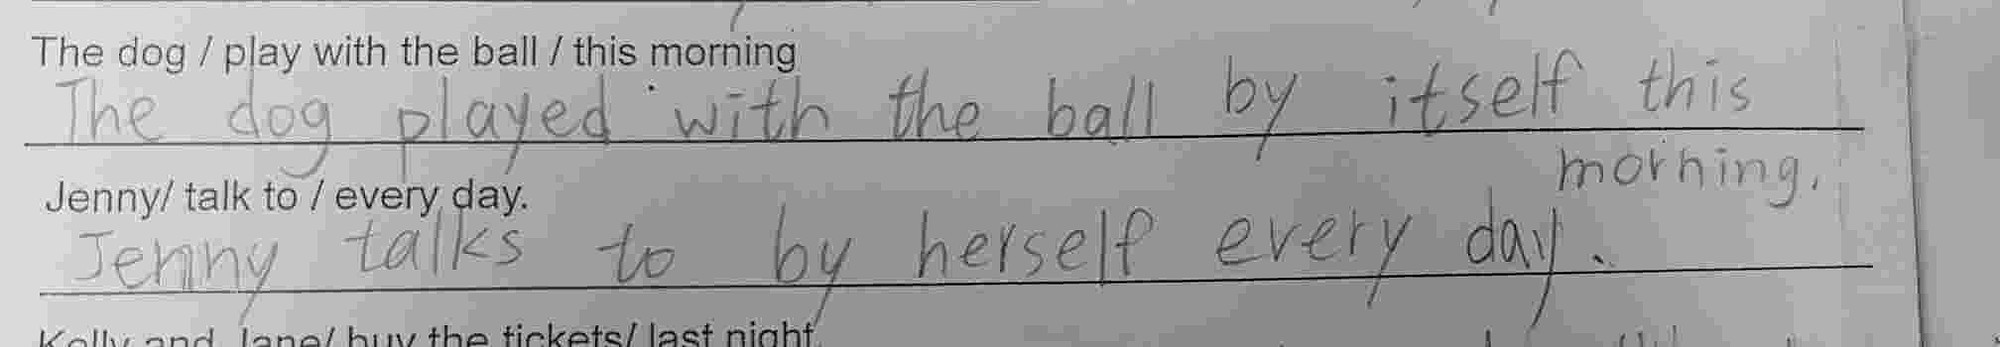 The dog / play with the ball / this morning
The dog played with the ball by itself this
morning.
Jenny/ talk to / every day.
Jenny talks to by herself every day.
Kelly and Jane/ buy the tickets/ last night